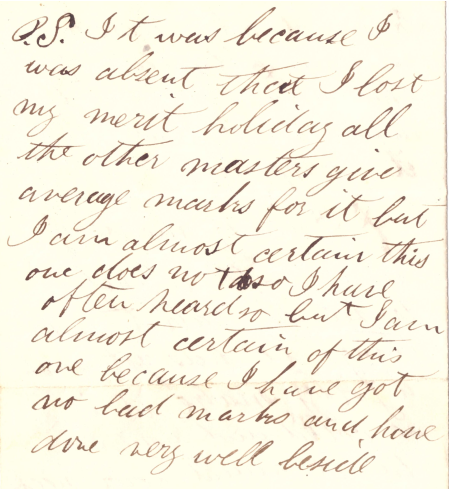 P.S. It was because I
was absent that I lost
my merit holiday all
the other masters give
average marks for it but
I am almost certain this
one does not so I have
often heard so but I am
almost certain of this
one because I have got
no bad marks and have
done very well beside